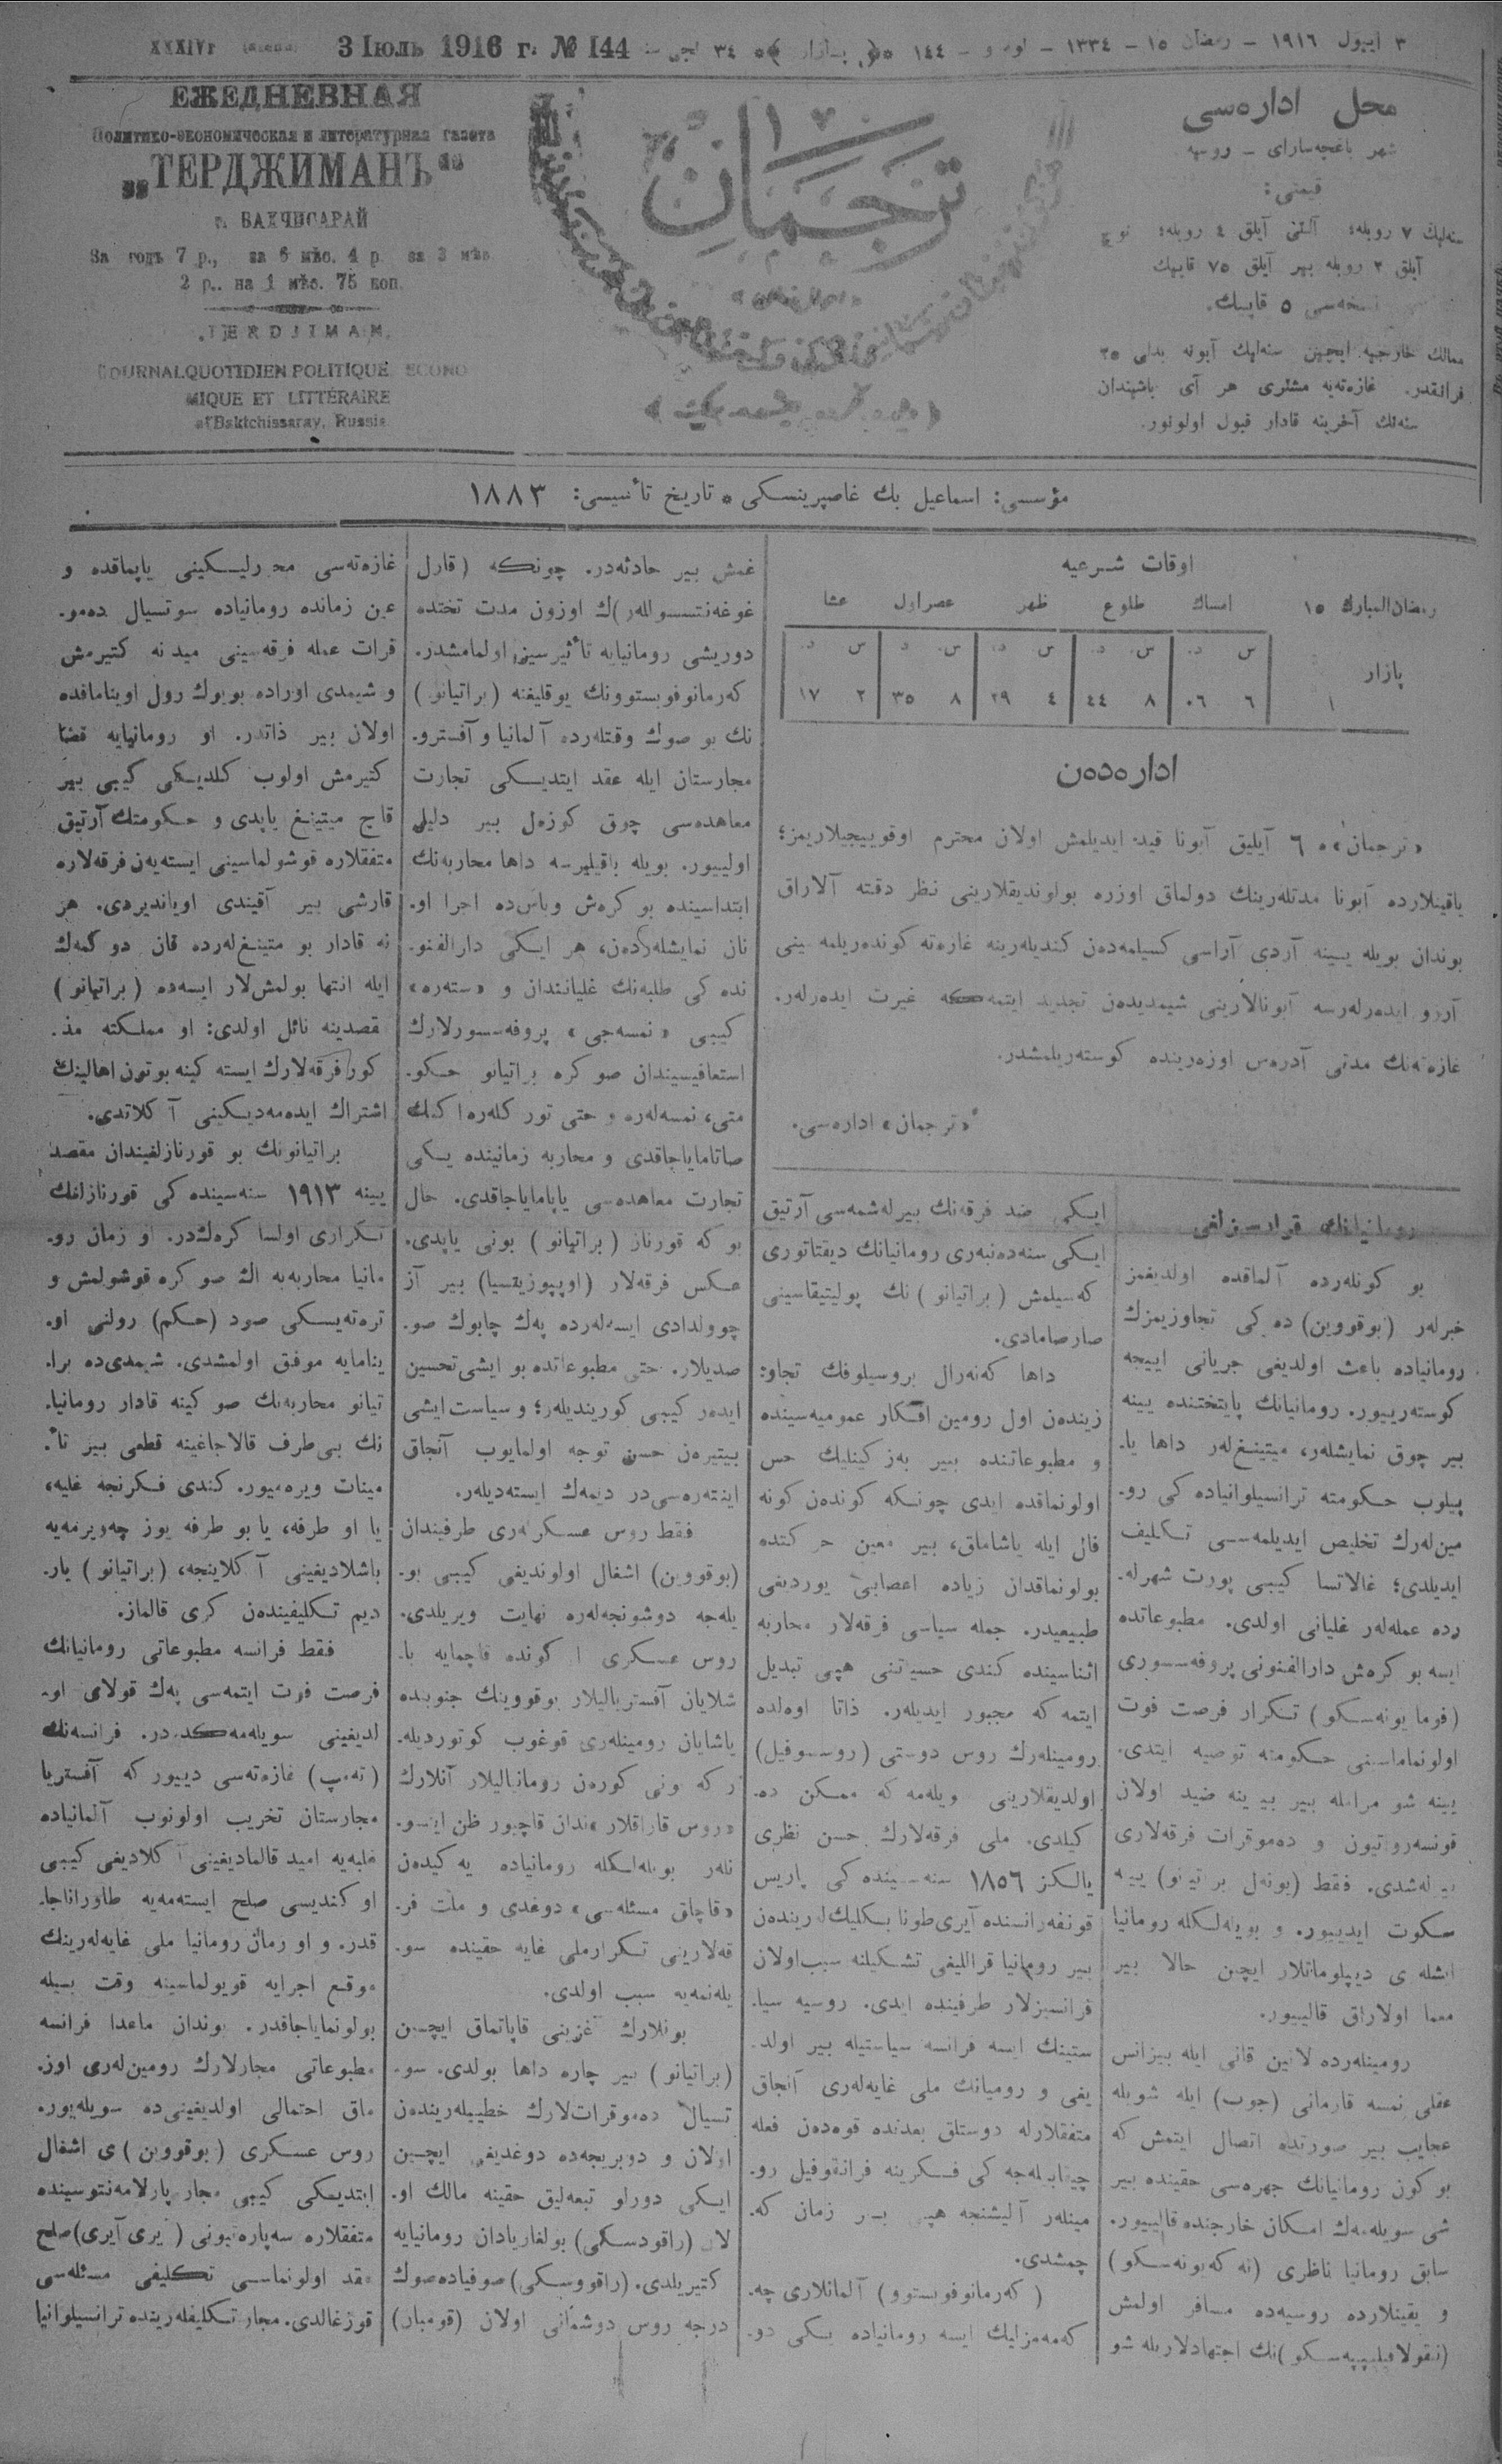 ٣ اییول ١٩١٦ – رمضان ١٥ – ١٣٣٤ – ١٤٤ ٣٤
3 Іюль 1916 г. № 144
XXXIVг
ЕЖЕДНЕВНАЯ
Политико-экономическая и литературная газета
„ТЕРДЖИМАНЪ“
г. БАХЧИСАРАЙ
За годъ 7 р., за 6 мѣс. 4 р. за 3 мѣс.
2 р.. на 1 мѣс. 75 коп.
TERDJIMAN.
JOURNAL QUOTIDIEN POLITIQUE, ECONO
MIQUE ET LITTÉRAIRE
Baktchissaray, Russie
ترجمان
محل اداره‌سی
شهر باغچه‌سارای – روسیه
قیمتی:
سنه‌لیك ٧ روبله؛ آلتی آیلق ٤ روبله؛
آیلق ٢ روبله بیر آیلق ٧٥ قاپیك
نسخه‌سی ٥ قاپیك.
ممالك خارجیه ایچین سنه‌لیك آبونه بدلی ٢٥
فرانقدر. غازه‌ته‌یه مشتری هر آی باشیندان
سنه‌نك آخرینه قادار قبول اولونور.
مؤسسی: اسماعیل بك غاصپرینسکی * تاریخ تأسیسی: ١٨٨٣
اوقات شرعیه
رمضان المبارك ١٥ امساك طلوع ظهر عصر اول عشا
پازار س د س د س د س د س د
١ ٦ ٠٦ ٨ ٤٤ ٤ ٢٩ ٨ ٣٥ ٢ ١٧
اداره‌دن
«ترجمان»ه ٦ آیلیق آبونا قید ایدیلمش اولان محترم اوقوییجیلاریمز؛
یاقینلارده آبونا مدتله‌رینك دولماق اوزره بولوندیقلارینی نظر دقته آلاراق
بوندان بویله یینه آردی آراسی کسیلمه‌دن کندیله‌رینه غازه‌ته کونده‌ریلمه‌سینی
آرزو ایده‌رله‌رسه آبونالارینی شیمدیدن تجدید ایتمه‌که غیرت ایده‌رله‌ر.
غازه‌ته‌نك مدتی آدره‌س اوزه‌رینده کوسته‌ریلمشدر.
«ترجمان» اداره‌سی.
رومانیانك قرارسزلغی
بو کونله‌رده آلماقده اولدیغمز
خبرله‌ر (بوقووین) ده کی تجاوزیمزك
رومانیاده باعث اولدیغی جریانی اییجه
کوسته‌رییور. رومانیانك پایتختنده یینه
بیر چوق نمایشله‌ر، میتینغ‌له‌ر داها یا.
پیلوب حکومته ترانسیلوانیاده کی رو.
مین‌له‌رك تخلیص ایدیلمه‌سی تکلیف
ایدیلدی؛ غالاتسا کیبی پورت شهرله.
رده عمله‌له‌ر غلیانی اولدی. مطبوعاتده
ایسه بو کره‌ش دارالفنونی پروفه‌سسوری
(فوما یونه‌سکو) تکرار فرصت فوت
اولونماماسنی حکومته توصیه ایتدی.
یینه شو مرامله بیر بیرینه ضد اولان
قونسه‌رواتیون و ده‌موقرات فرقه‌لاری
بیرله‌شدی. فقط (یونه‌ل براتیانو) یینه
سکوت ایدییور. و بویله‌لکله رومانیا
ایشله‌ری دیپلوماتلار ایچین حالا بیر
معما اولاراق قالییور.
رومینله‌رده لاتین قانی ایله بیزانس
عقلی نمسه قارمانی (جوب) ایله شویله
عجایب بیر صورتده اتصال ایتمش که
بو کون رومانیانك چهره‌سی حقینده بیر
شی سویله‌مه‌ك امکان خارجنده قالییور.
سابق رومانیا ناظری (ته که یونه‌سکو)
و یقینلارده روسیه‌ده مسافر اولمش
(نیقولا فیلیپپه‌سکو)نك اجتهادلاریله شو
ایکی ضد فرقه‌نك بیرله‌شمه‌سی آرتیق
ایکی سنه‌ده‌نبه‌ری رومانیانك دیقتاتوری
که‌سیلمش (براتیانو) نك پولیتیقاسینی
صارصامادی.
داها که‌نه‌رال بروسیلوفك تجاو:
زیندن اول رومین افکار عمومیه‌سینده
و مطبوعاتنده بیر به‌زکینلیك حس
اولونماقده ایدی چونکه کوندن کونه
فال ایله یاشاماق، بیر معین حرکتده
بولونماقدان زیاده اعصابی یوردیغی
طبیعیدر. جمله سیاسی فرقه‌لار محاربه
اثناسینده کندی حسیاتنی هپی تبدیل
ایتمه که مجبور ایدیله‌ر. ذاتا اوه‌لده
رومینله‌رك روس دوستی (روسسوفیل)
اولدیقلارینی سویله‌مه که ممکن ده.
کیلدی. ملی فرقه‌لارك حسن نظری
یالکز ١٨٥٦ سنه‌سینده کی پاریس
قونفه‌رانسنده آیری طونا بکلیك‌له‌ریندن
بیر رومانیا قراللیغی تشکیلنه سبب اولان
فرانسیزلار طرفینده ایدی. روسیه سیا.
ستینك ایسه فرانسه سیاستیله بیر اولد.
یغی و رومیانك ملی غایه‌له‌ری آنجاق
متفقلارله دوستلق بعدنده قوه‌دن فعله
چیقابیله‌جه کی فکرینه فرانقوفیل رو.
مینله‌ر آلیشنجه هپی بیر زمان که.
چمشدی.
(که‌رمانوفوبستوو) آلمانلاری چه.
که‌مه‌مزلیك ایسه رومانیاده یکی دو.
غمش بیر حادثه‌در. چونکه (قارل
غوغه‌نتسوللەر)ك اوزون مدت تختده
دوریشی رومانیایه تأثیرسیز اولمامشدر.
که‌رمانوفوبستوونك یوقلیغنه (براتیانو)
نك بو صوك وقتله‌رده آلمانیا و آفسترو.
مجارستان ایله عقد ایتدیکی تجارت
معاهده‌سی چوق کوزه‌ل بیر دلیل
اولییور. بویله باقیلیرسه داها محاربه‌نك
ابتداسینده بو کره‌ش و یاس‌ده اجرا او.
نان نمایشله‌ردن، هر ایکی دارالفنو.
نده کی طلبه‌نك غلیانندان و «ستەرە»
کیبی «نمسه‌جی» پروفه‌سسورلارك
استعافیسیندان صو کره براتیانو حکو.
متی، نمسه‌له‌ره و حتی تورکله‌ره اکمك
صاتامایاجاقدی و محاربه زمانینده یکی
تجارت معاهده‌سی یاپامایاجاقدی. حال
بو که قورناز (براتیانو) بونی یاپدی.
عکس فرقه‌لار (اوپپوزیتسیا) بیر آز
چوولدادی ایسه‌له‌رده په‌ك چابوك صو.
صدیلار. حتی مطبوعاتده بو ایشی تحسین
ایده‌ر کیبی کوریندیله‌ر؛ و سیاست ایشی
بیتیره‌ن حسن توجه اولمایوب آنجاق
اینته‌ره‌سی‌در دیمه‌ك ایسته‌دیله‌ر.
فقط روس عسکرله‌ری طرفیندان
(بوقووین) اشغال اولوندیغی کیبی بو.
یله‌جه دوشونجه‌له‌ره نهایت ویریلدی.
روس عسکری اوکونده قاچمایه با.
شلایان آفستریالیلار بوقووینك جنوبنده
یاشایان رومینله‌ری قوغوب کوتوردیله.
ر که بونی کوره‌ن رومانیالیلار آنلارك
«روس قازاقلارندان قاچیور ظن ایتسو.
نله‌ر بویله‌لکله رومانیاده یه کیدن
«قاچاق مسئله‌سی» دوغدی و ملت فر.
قه‌لارینی تکرار ملی غایه حقینده سو.
یله‌نمه‌یه سبب اولدی.
بونلارك آغزینی قاپاتماق ایچین
(براتیانو) بیر چاره داها بولدی. سو.
تسیال ده‌موقرات‌لارك خطیبله‌ریندن
اولان و دوبریجه‌ده دوغدیغی ایچین
ایکی دورلو تبعه‌لیق حقینه مالك او.
لان (راقووسکی) بولغاریادان رومانیایه
کتیریلدی. (راقووسکی) صوفیاده صوك
درجه روس دوشمانی اولان (قومبار)
غازه‌ته‌سی محررلیکینی یاپماقده و
عین زمانده رومانیاده سوتسیال ده‌مو.
قرات عمله فرقه‌سینی میدنه کتیرمش
و شیمدی اوراده بویوك رول اوینامافده
اولان بیر ذاتدر. او رومانیایه قضا
کتیرمش اولوب کلدیکی کیبی بیر
قاچ میتینغ یاپدی و حکومتك آرتیق
متفقلاره قوشولماسینی ایسته‌یه‌ن فرقه‌لاره
قارشی بیر آقیندی اویاندیردی. هر
نه قادار بو متینغ‌له‌رده قان دوکمه‌ك
ایله انتها بولمش‌لار ایسه‌ده (براتیانو)
قصدینه نائل اولدی: او مملکته مذ.
کور فرقه‌لارك ایسته کینه بوتون اهالینك
اشتراك ایده‌مه‌دیکینی آ کلاتدی.
براتیانونك بو قورنازلغیندان مقصد
یینه ١٩١٣ سنه‌سینده کی قورنازلغك
تکراری اولسا کره‌ك‌در. او زمان رو.
مانیا محاربه‌یه اك صو کره قوشولمش و
تره‌ته‌یسکی صود (حکم) رولنی او.
ینامایه موفق اولمشدی. شیمدی‌ده برا.
تیانو محاربه‌نك صو کینه قادار رومانیا.
نك بی‌طرف قالاجاغینه قطعی بیر تأ.
مینات ویره‌میور. کندی فکرنجه غلبه،
یا او طرفه، یا بو طرفه یوز چه‌ویرمه‌یه
باشلادیغینی آ کلاینجه، (براتیانو) یار.
دیم تکلیفیندن کری قالماز.
فقط فرانسه مطبوعاتی رومانیانك
فرصت فوت ایتمه‌سی په‌ك قولای او.
لدیغینی سویله‌مه‌کده‌در. فرانسه‌نك
(ته‌مپ) غازه‌ته‌سی دییور که آفستریا
مجارستان تخریب اولونوب آلمانیاده
غلبه‌یه امید قالمادیغینی آ کلادیغی کیبی
او کندیسی صلح ایسته‌مه‌یه طاوراناجا.
قدر. و او زمان رومانیا ملی غایه‌له‌رینك
موقع اجرایه قویولماسینه وقت بیله
بولونمایاجاقدر. بوندان ماعدا فرانسه
مطبوعاتی مجارلارك رومین‌له‌ری اوز.
ماق احتمالی اولدیغینی‌ده سویله‌یور.
روس عسکری (بوقووین)ی اشغال
ایتدیکی کیبی مجار پارلامه‌نتوسینده
متفقلاره سه‌پاره‌تیونی (آیری آیری) صلح
عقد اولونماسی تکلیفی مسئله‌سی
قوزغالدی. مجار تکلیفله‌رینده ترانسیلوانیا